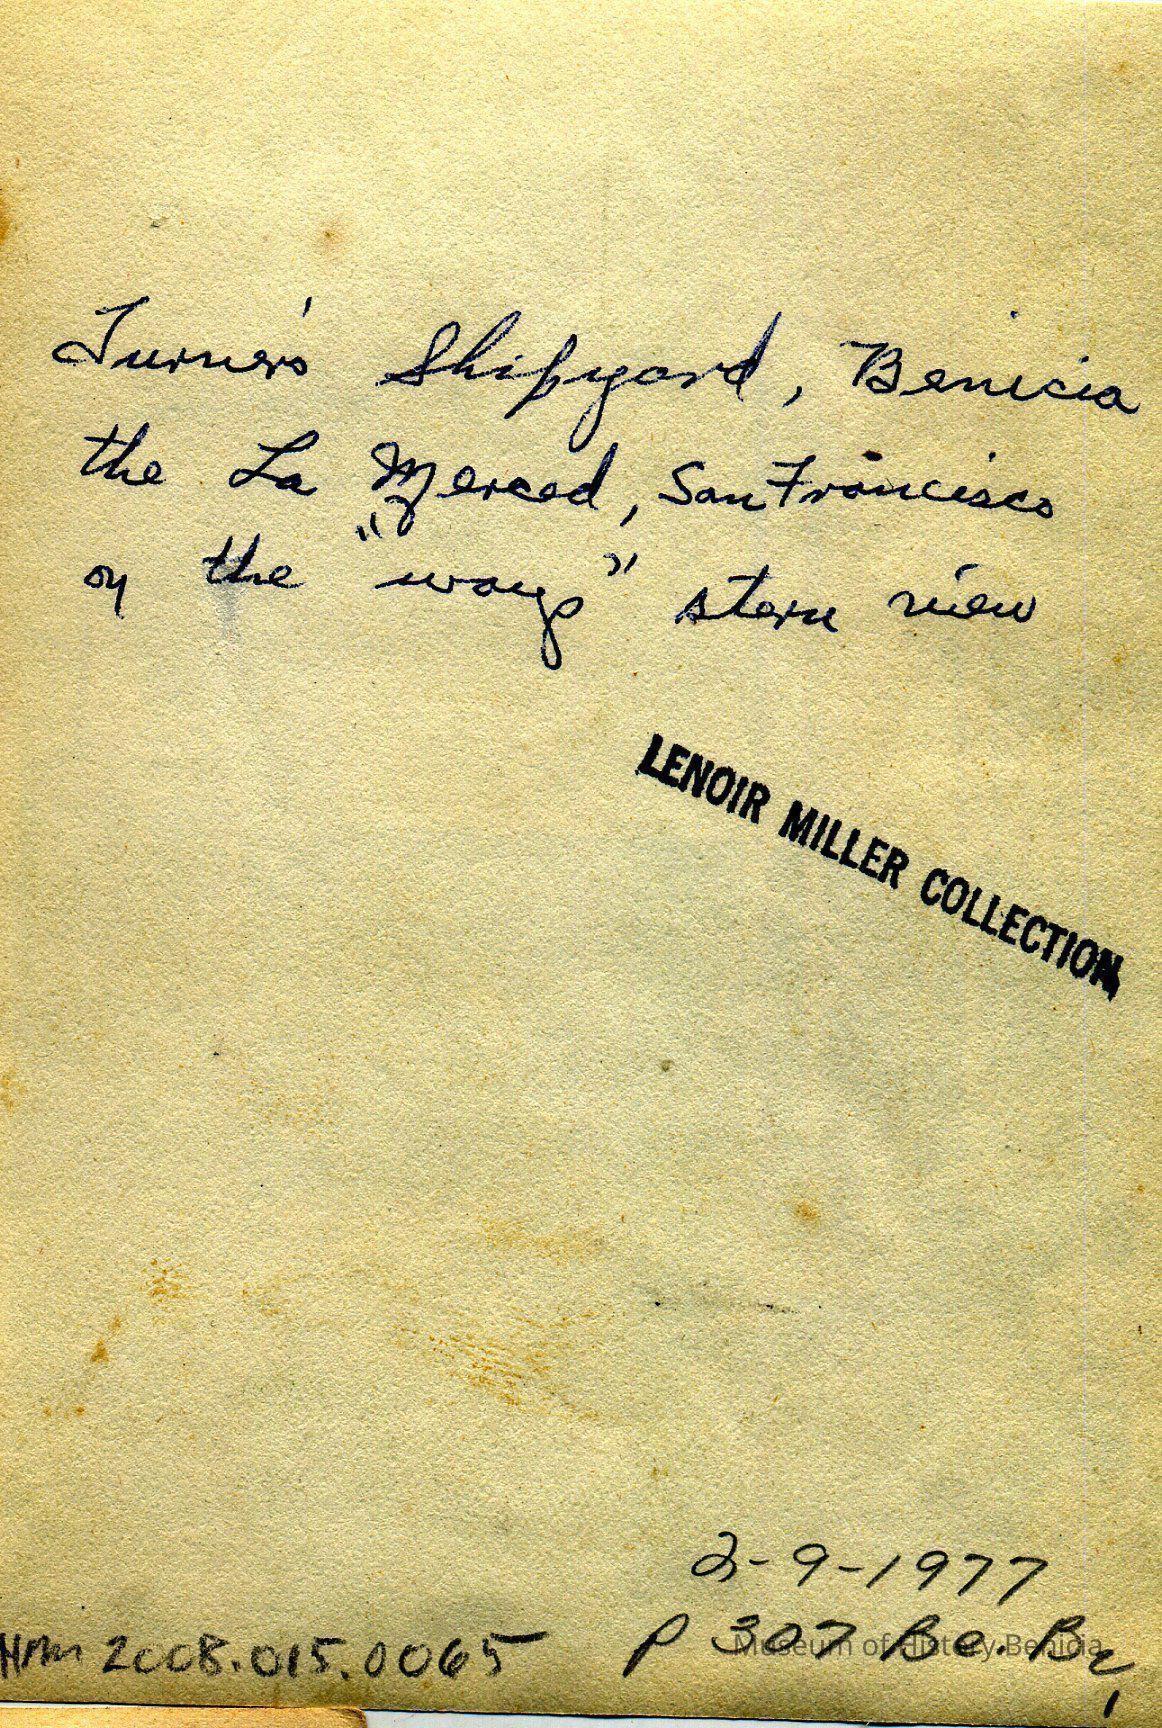 Turner's Shipyard, Benicia
the La Merced, San Francisco
on the "ways" stern view
LENOIR MILLER COLLECTION
2-9-1977
P 307 Be.
2008.015.0065
Museum of History Benicia